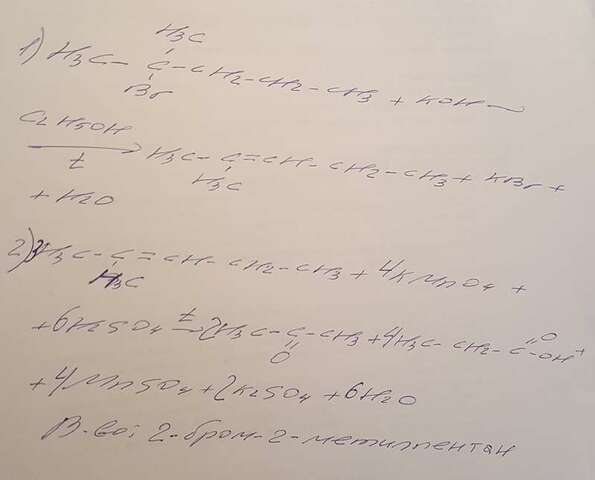 H3C
1) H3C - C - CH2 - CH2 - CH3 + KOH →
Br
C2H5OH
→ H3C - C = CH - CH2 - CH3 + KBr +
t H3C
+ H2O
2) H3C - C = CH - CH2 - CH3 + 4KMnO4 +
H3C
t O
+ 6H2SO4 → 2H3C - C - CH3 + 4H3C - CH2 - C - OH +
O
+ 4MnSO4 + 2K2SO4 + 6H2O
В-во: 2-бром-2-метилпентан